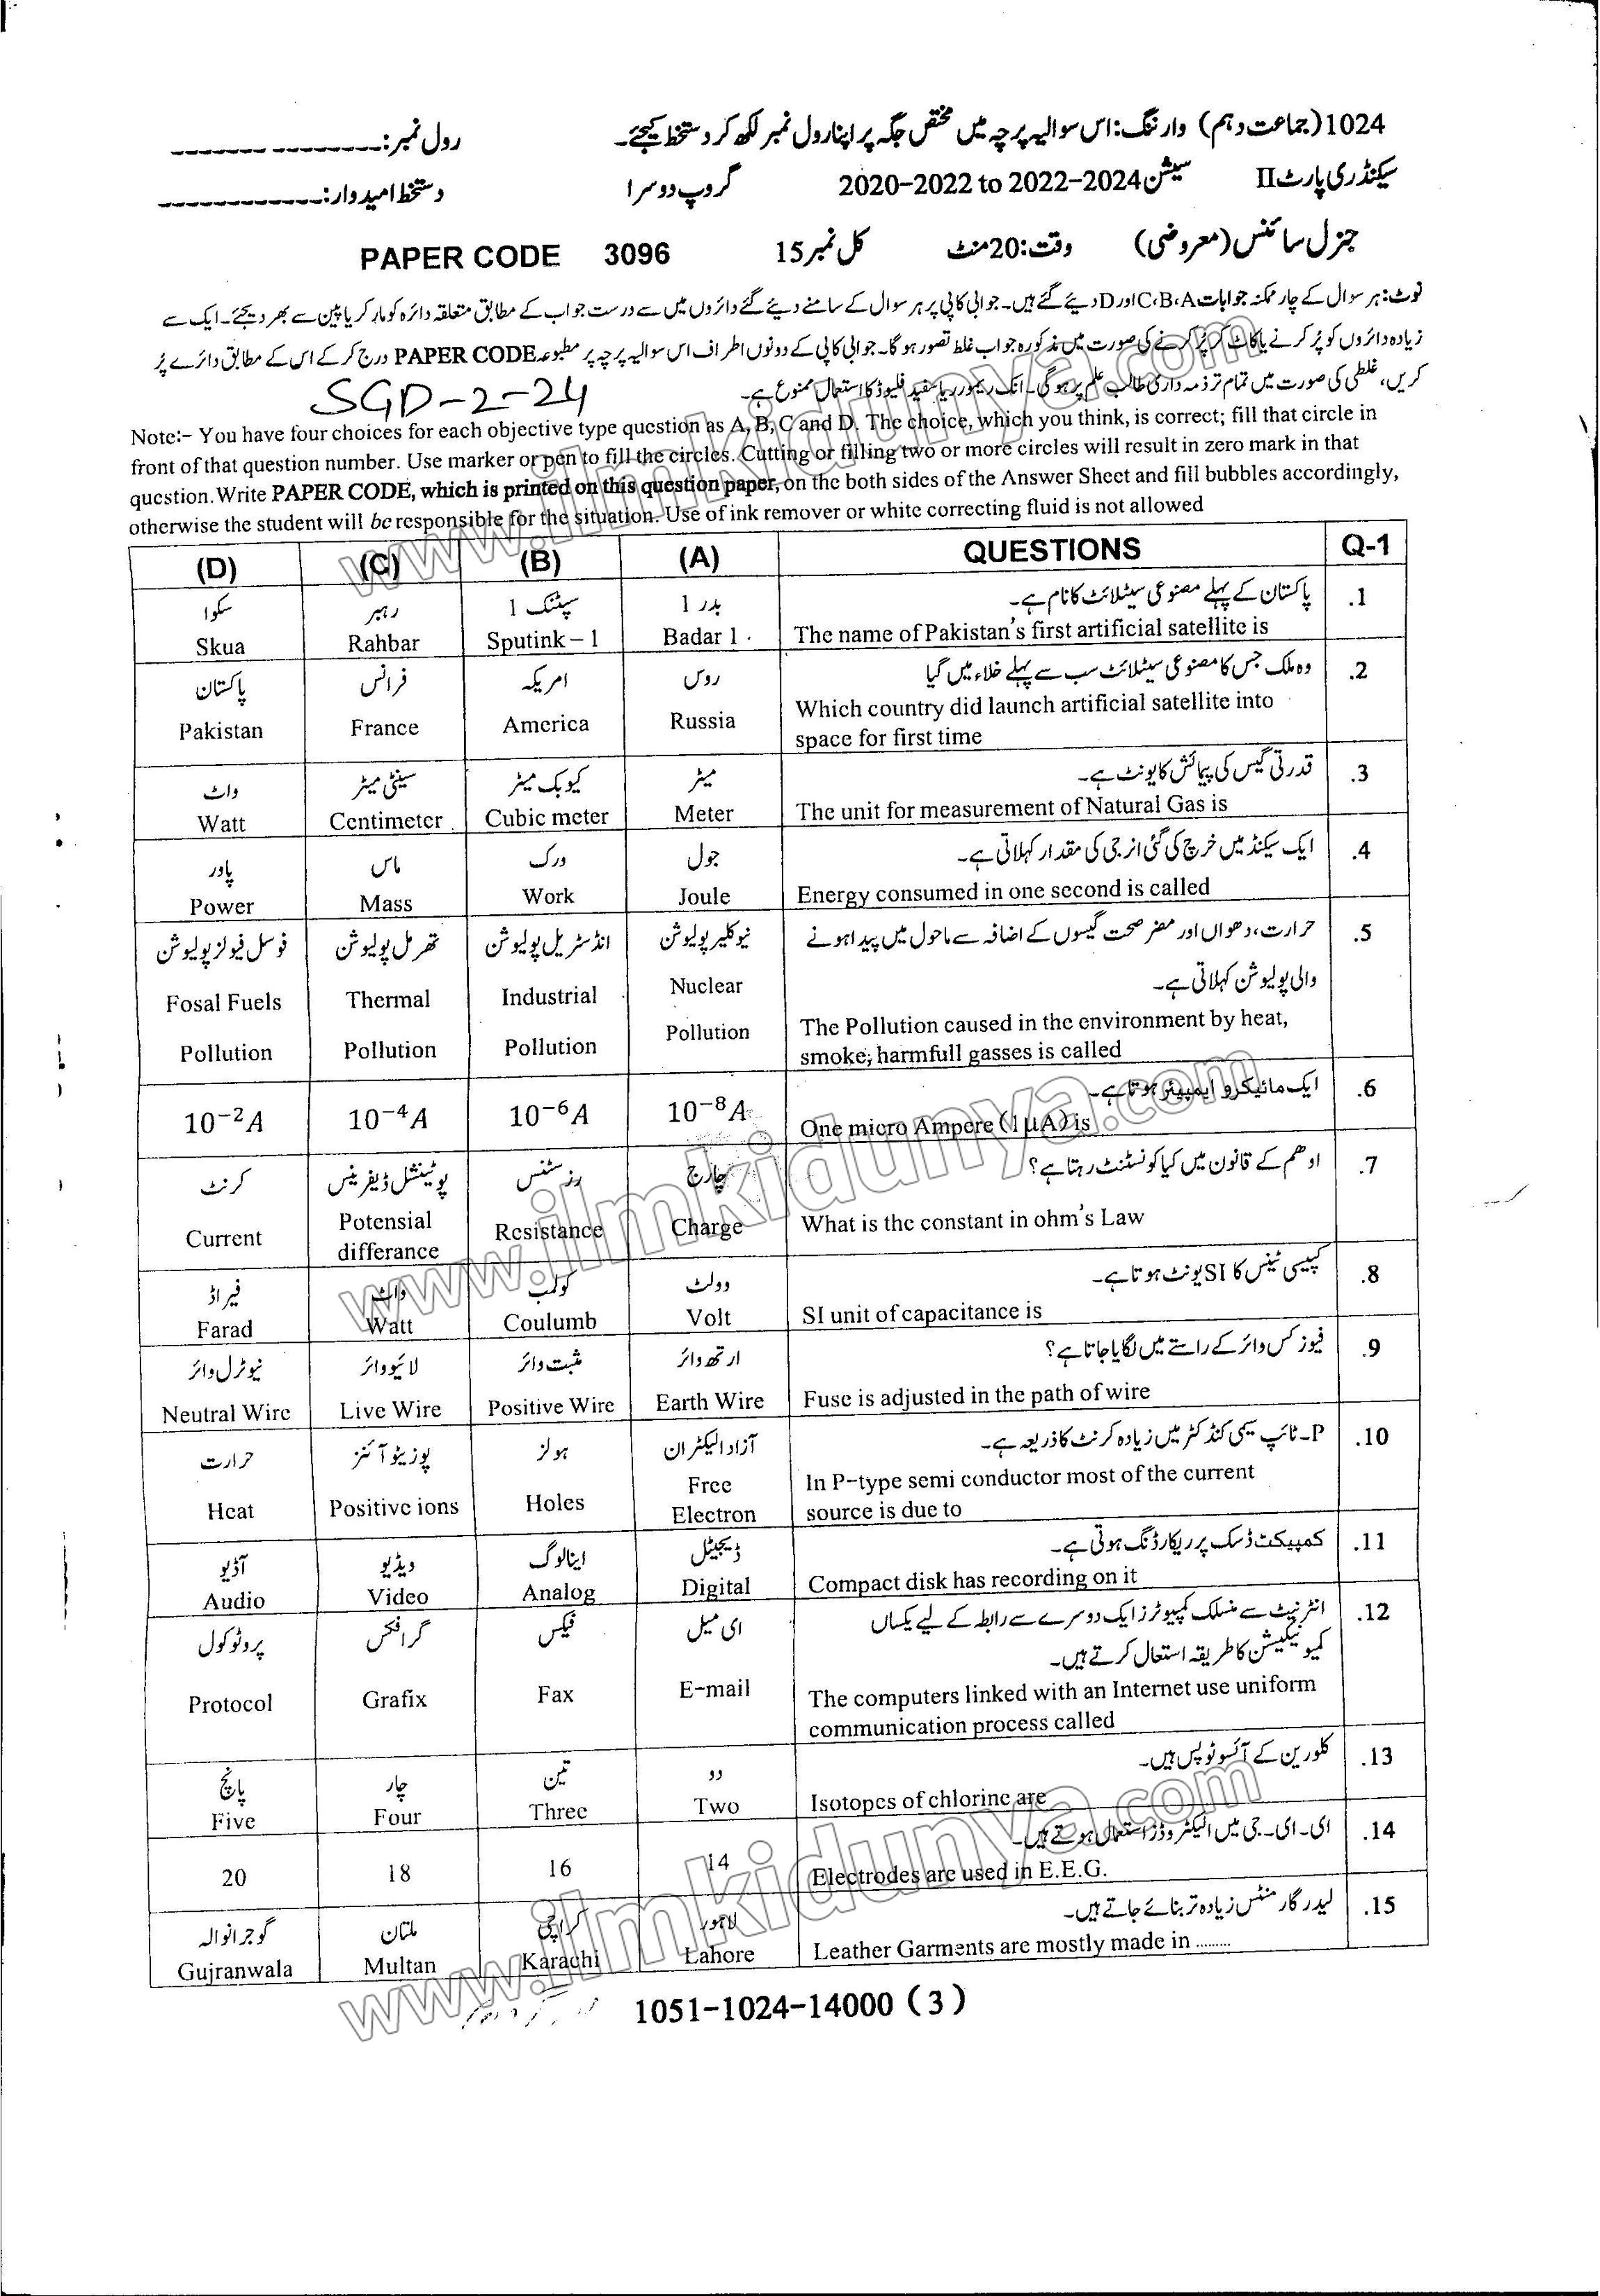 1024(جماعت دہم) وارننگ: اس سوالیہ پرچہ میں مختص جگہ پر اپنا رول نمبر لکھ کر دستخط کیجئے۔ رول نمبر:
سیکنڈری پارٹ II سیشن 2020-2022 to 2022-2024 گروپ دوسرا دستخط امیدوار:
جنرل سائنس (معروضی) وقت: 20 منٹ کل نمبر 15 PAPER CODE 3096
نوٹ: ہر سوال کے چار ممکنہ جوابات A،B،C اور D دیئے گئے ہیں۔ جوابی کاپی پر ہر سوال کے سامنے دیئے گئے دائروں میں سے درست جواب کے مطابق متعلقہ دائرہ کو مارکر یا پین سے بھر دیجئے۔ ایک سے
زیادہ دائروں کو پُر کرنے یا کاٹ کر پُر کرنے کی صورت میں مذکورہ جواب غلط تصور ہو گا۔ جوابی کاپی کے دونوں اطراف اس سوالیہ پرچہ پر مطبوعہ PAPER CODE درج کر کے اس کے مطابق دائرے پُر
کریں، غلطی کی صورت میں تمام تر ذمہ داری طالب علم پر ہوگی۔ انک ریموور یا سفید فلیوڈ کا استعمال ممنوع ہے۔
SGD-2-24
Note:- You have four choices for each objective type question as A, B, C and D. The choice, which you think, is correct; fill that circle in
front of that question number. Use marker or pen to fill the circles. Cutting or filling two or more circles will result in zero mark in that
question. Write PAPER CODE, which is printed on this question paper, on the both sides of the Answer Sheet and fill bubbles accordingly,
otherwise the student will be responsible for the situation. Use of ink remover or white correcting fluid is not allowed
(D) (C) (B) (A) QUESTIONS Q-1
پاکستان کے پہلے مصنوعی سیٹلائٹ کا نام ہے۔ .1
بدر 1 سپٹنک 1 رہبر سکوا
Skua Rahbar Sputink – 1 Badar 1 The name of Pakistan's first artificial satellite is
وہ ملک جس کا مصنوعی سیٹلائٹ سب سے پہلے خلاء میں گیا .2
روس امریکہ فرانس پاکستان
Pakistan France America Russia Which country did launch artificial satellite into
space for first time
قدرتی گیس کی پیمائش کا یونٹ ہے۔ .3
میٹر کیوبک میٹر سینٹی میٹر واٹ
Watt Centimeter Cubic meter Meter The unit for measurement of Natural Gas is
ایک سیکنڈ میں خرچ کی گئی انرجی کی مقدار کہلاتی ہے۔ .4
جول ورک ماس پاور
Power Mass Work Joule Energy consumed in one second is called
حرارت، دھواں اور مضر صحت گیسوں کے اضافہ سے ماحول میں پیدا ہونے .5
والی پولیوشن کہلاتی ہے۔
نیوکلیر پولیوشن انڈسٹریل پولیوشن تھرمل پولیوشن فوسل فیولز پولیوشن
Fosal Fuels Thermal Industrial Nuclear
Pollution Pollution Pollution Pollution The Pollution caused in the environment by heat,
smoke, harmfull gasses is called
ایک مائیکرو ایمپیئر ہوتا ہے۔ .6
10⁻²A 10⁻⁴A 10⁻⁶A 10⁻⁸A One micro Ampere (1 µA) is
اوھم کے قانون میں کیا کونسٹنٹ رہتا ہے؟ .7
چارج رزسٹنس پوٹینشل ڈیفرینس کرنٹ
Current Potensial differance Resistance Charge What is the constant in ohm's Law
کپیسی ٹینس کا SI یونٹ ہوتا ہے۔ .8
وولٹ کولمب واٹ فیراڈ
Farad Watt Coulumb Volt SI unit of capacitance is
فیوز کس وائر کے راستے میں لگایا جاتا ہے؟ .9
ارتھ وائر مثبت وائر لائیو وائر نیوٹرل وائر
Neutral Wire Live Wire Positive Wire Earth Wire Fuse is adjusted in the path of wire
P-ٹائپ سیمی کنڈکٹر میں زیادہ کرنٹ کا ذریعہ ہے۔ .10
آزاد الیکٹران ہولز پوزیٹو آئنز حرارت
Heat Positive ions Holes Free Electron In P-type semi conductor most of the current
source is due to
کمپیکٹ ڈسک پر ریکارڈنگ ہوتی ہے۔ .11
ڈیجیٹل اینالوگ ویڈیو آڈیو
Audio Video Analog Digital Compact disk has recording on it
انٹرنیٹ سے منسلک کمپیوٹرز ایک دوسرے سے رابطہ کے لیے یکساں .12
کمیونیکیشن کا طریقہ استعمال کرتے ہیں۔
ای میل فیکس گرافکس پروٹوکول
Protocol Grafix Fax E-mail The computers linked with an Internet use uniform
communication process called
کلورین کے آئسوٹوپس ہیں۔ .13
دو تین چار پانچ
Five Four Three Two Isotopes of chlorine are
ای۔ای۔جی میں الیکٹروڈز استعمال ہوتے ہیں۔ .14
20 18 16 14 Electrodes are used in E.E.G.
لیدر گارمنٹس زیادہ تر بنائے جاتے ہیں۔ .15
لاہور کراچی ملتان گوجرانوالہ
Gujranwala Multan Karachi Lahore Leather Garments are mostly made in .........
1051-1024-14000 (3)
www.ilmkidunya.com
www.ilmkidunya.com
www.ilmkidunya.com